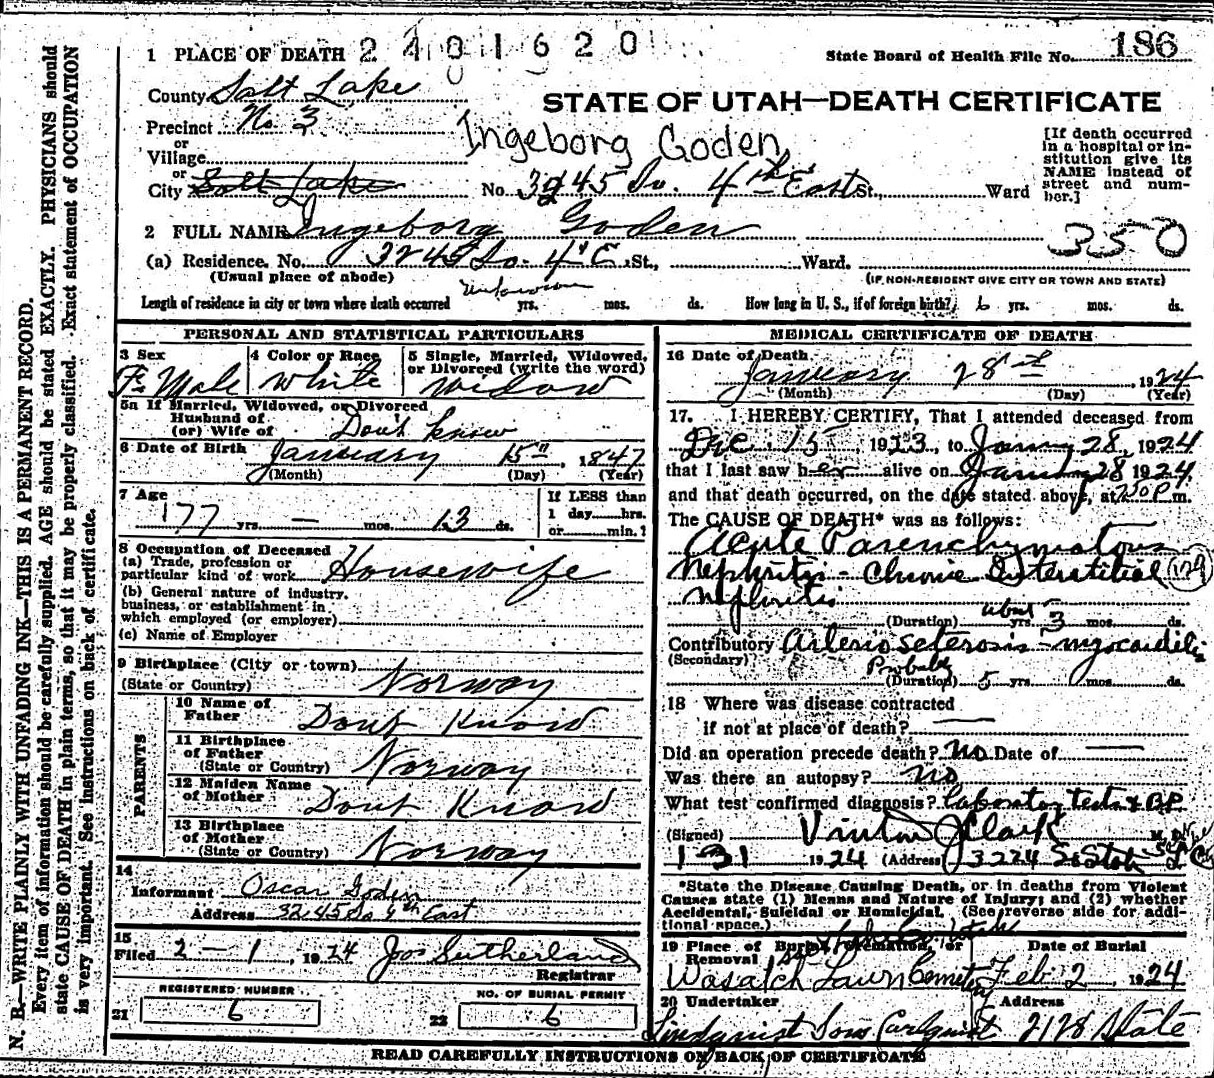 1 PLACE OF DEATH 2 4 0 1 6 2 0
State Board of Health File No. 186
County Salt Lake
STATE OF UTAH—DEATH CERTIFICATE
Precinct No 3
Ingeborg Goden
or
Village
or
City Salt Lake No. 3245 So. 4th East St., Ward
[If death occurred in a hospital or institution give its NAME instead of street and number.]
2 FULL NAME Ingeborg Goden
350
(a) Residence. No. 3245 So. 4th E. St., Ward.
(Usual place of abode) (IF NON-RESIDENT GIVE CITY OR TOWN AND STATE)
Length of residence in city or town where death occurred unknown yrs. mos. ds. How long in U. S., if of foreign birth? 6 yrs. mos. ds.
PERSONAL AND STATISTICAL PARTICULARS
3 Sex 4 Color or Race 5 Single, Married, Widowed, or Divorced (write the word)
F. Male White Widow
5a If Married, Widowed, or Divorced
Husband of
(or) Wife of Dont know
6 Date of Birth January 15th, 1847
(Month) (Day) (Year)
7 Age If LESS than
77 yrs. — mos. 13 ds. 1 day hrs.
or min.?
8 Occupation of Deceased
(a) Trade, profession or
particular kind of work Housewife
(b) General nature of industry,
business, or establishment in
which employed (or employer)
(c) Name of Employer
9 Birthplace (City or town)
(State or Country) Norway
PARENTS
10 Name of
Father Dont Know
11 Birthplace
of Father
(State or Country) Norway
12 Maiden Name
of Mother Dont Know
13 Birthplace
of Mother
(State or Country) Norway
14
Informant Oscar Goden
Address 3245 So 4th East
15
Filed 2 - 1, 1924 Jos Sutherland
Registrar
REGISTERED NUMBER NO. OF BURIAL PERMIT
21 6 22 6
MEDICAL CERTIFICATE OF DEATH
16 Date of Death
January 28th, 1924
(Month) (Day) (Year)
17. I HEREBY CERTIFY, That I attended deceased from
Dec. 15, 1923, to January 28, 1924
that I last saw her alive on January 28 1924,
and that death occurred, on the date stated above, at P m.
The CAUSE OF DEATH* was as follows:
Acute Parenchymatous
Nephritis - Chronic Interstitial 129
Nephritis
(Duration) about yrs. 3 mos. ds.
Contributory Arteriosclerosis - myocarditis
(Secondary)
Probably
(Duration) 5 yrs mos. ds.
18 Where was disease contracted
if not at place of death? —
Did an operation precede death? No Date of —
Was there an autopsy? no
What test confirmed diagnosis? Laboratory tests & BP
(Signed) Vinton J Clark M. D.
1-31 1924 (Address) 3224 So State
*State the Disease Causing Death, or in deaths from Violent
Causes state (1) Means and Nature of Injury; and (2) whether
Accidental, Suicidal or Homicidal. (See reverse side for addi-
tional space.)
19 Place of Burial, Cremation, or Date of Burial
Removal
Wasatch Lawn Cemetery Feb 2, 1924
20 Undertaker Address
Lindquist Sons Carlquist 2128 So State
READ CAREFULLY INSTRUCTIONS ON BACK OF CERTIFICATE
N. B.—WRITE PLAINLY WITH UNFADING INK—THIS IS A PERMANENT RECORD.
Every item of information should be carefully supplied. AGE should be stated EXACTLY. PHYSICIANS should
state CAUSE OF DEATH in plain terms, so that it may be properly classified. Exact statement of OCCUPATION
is very important. See instructions on back of certificate.